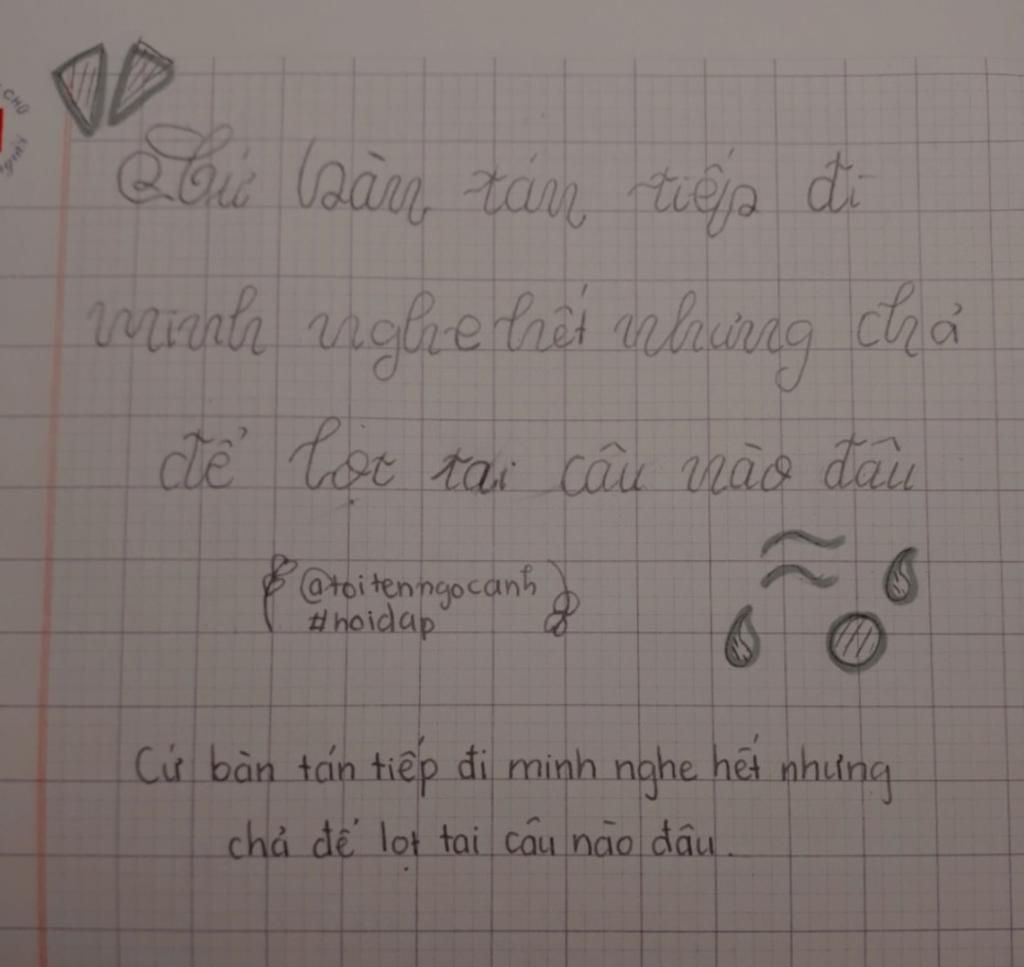 Cứ bàn tán tiếp đi
minh nghe hết nhưng chả
để lọt tai câu nào đâu
@toitenngocanh
#noidap
Cứ bàn tán tiếp đi minh nghe hết nhưng
chả để lọt tai câu nào đâu.